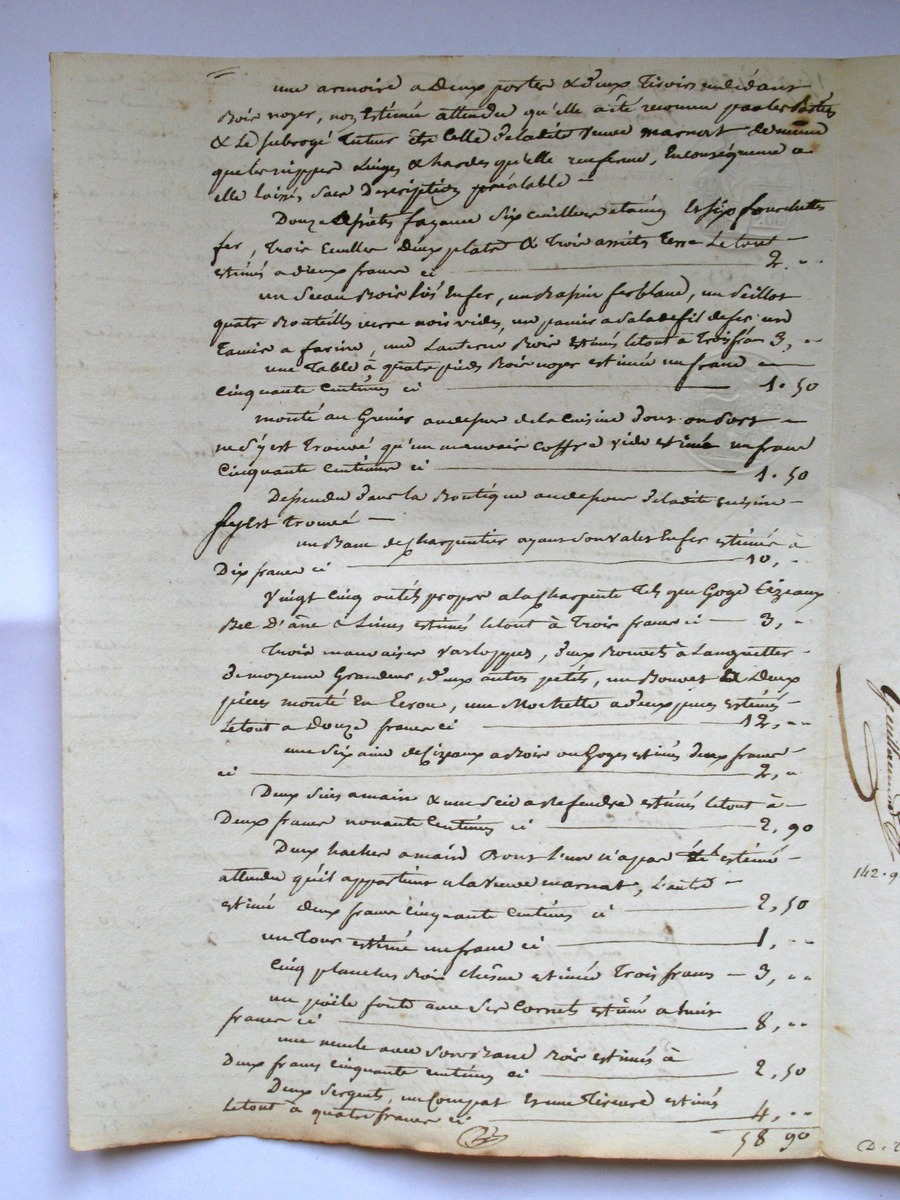 une armoire a Deux portes & deux Tiroirs endedans
Bois noyer, non Estimée attendu qu'elle a été reconnue par les Parties
& Le subrogé Tuteur être Celle de ladite veuve marnat de même
que les nippes Linges & hardes qu'elle renferme, En conséquence a
elle laissé sans Description préalable —
Douze assiets fayance six cuilliere etaing Et six fourchettes
fer, Trois Ecuelles Deux plats & Trois assiets Terre Le tout
estimés a deux francs ci 2. "
un Seau Bois liés En fer, un Bassin fer blanc, un Seillot
quatre Bouteilles verre noir vides, un panier a Salade fil de fer une
Tamis a farine, une Lanterne Bois Estimés letout à Trois fran 3, "
une Table à quatre pieds Bois noyer estimée un franc
Cinquante Centimes ci 1.50
monté au Grenier audessus de la Cuisine dont on sort
ne s'y est Trouvé qu'un mauvais coffre vide estimé un franc
Cinquante Centimes ci 1.50
Dessendu dans la Boutique audessous de ladite cuisine
s'y Est trouvé —
un Banc de Charpentier ayant son valet En fer estimés à
Dix francs ci 10, "
Vingt Cinq outils propres a la Charpente Tels que Goge Cizeaux
Bec D'âne & Limes estimés letout à Trois francs ci — 3, "
Trois mauvaises varloppes, deux Bouvets à Languetter
de moyenne Grandeur, deux autres petits, un Bouvet de Deux
pieces monté En Ecrou, une Mochette a deux joues estimés
Letout a Douze francs ci 12, "
une Sixaine de Cizeaux a Bois ou Goges estimés deux francs
ci 2, "
Deux Sies a main & une Scie a refendre estimés letout à
Deux francs nonante Centimes ci 2, 90
Deux haches a main Dont l'une n'a pas été estimé
attendu qu'il appartient a la Veuve marnat, L'autre
estimé deux francs cinquante Centimes ci 2, 50
un Tour estimé un franc ci 1, "
Cinq planches Bois chêne estimée Trois francs — 3, "
un poële fonte avec Ses Cornets estimé a huit
francs ci 8, "
une meule avec Son Banc Bois estimés à
Deux francs cinquante centimes ci 2, 50
Deux Sergents, un Compas Et une estimés
Letout à quatre francs ci 4, "
58 90
Guillaumod
142.9